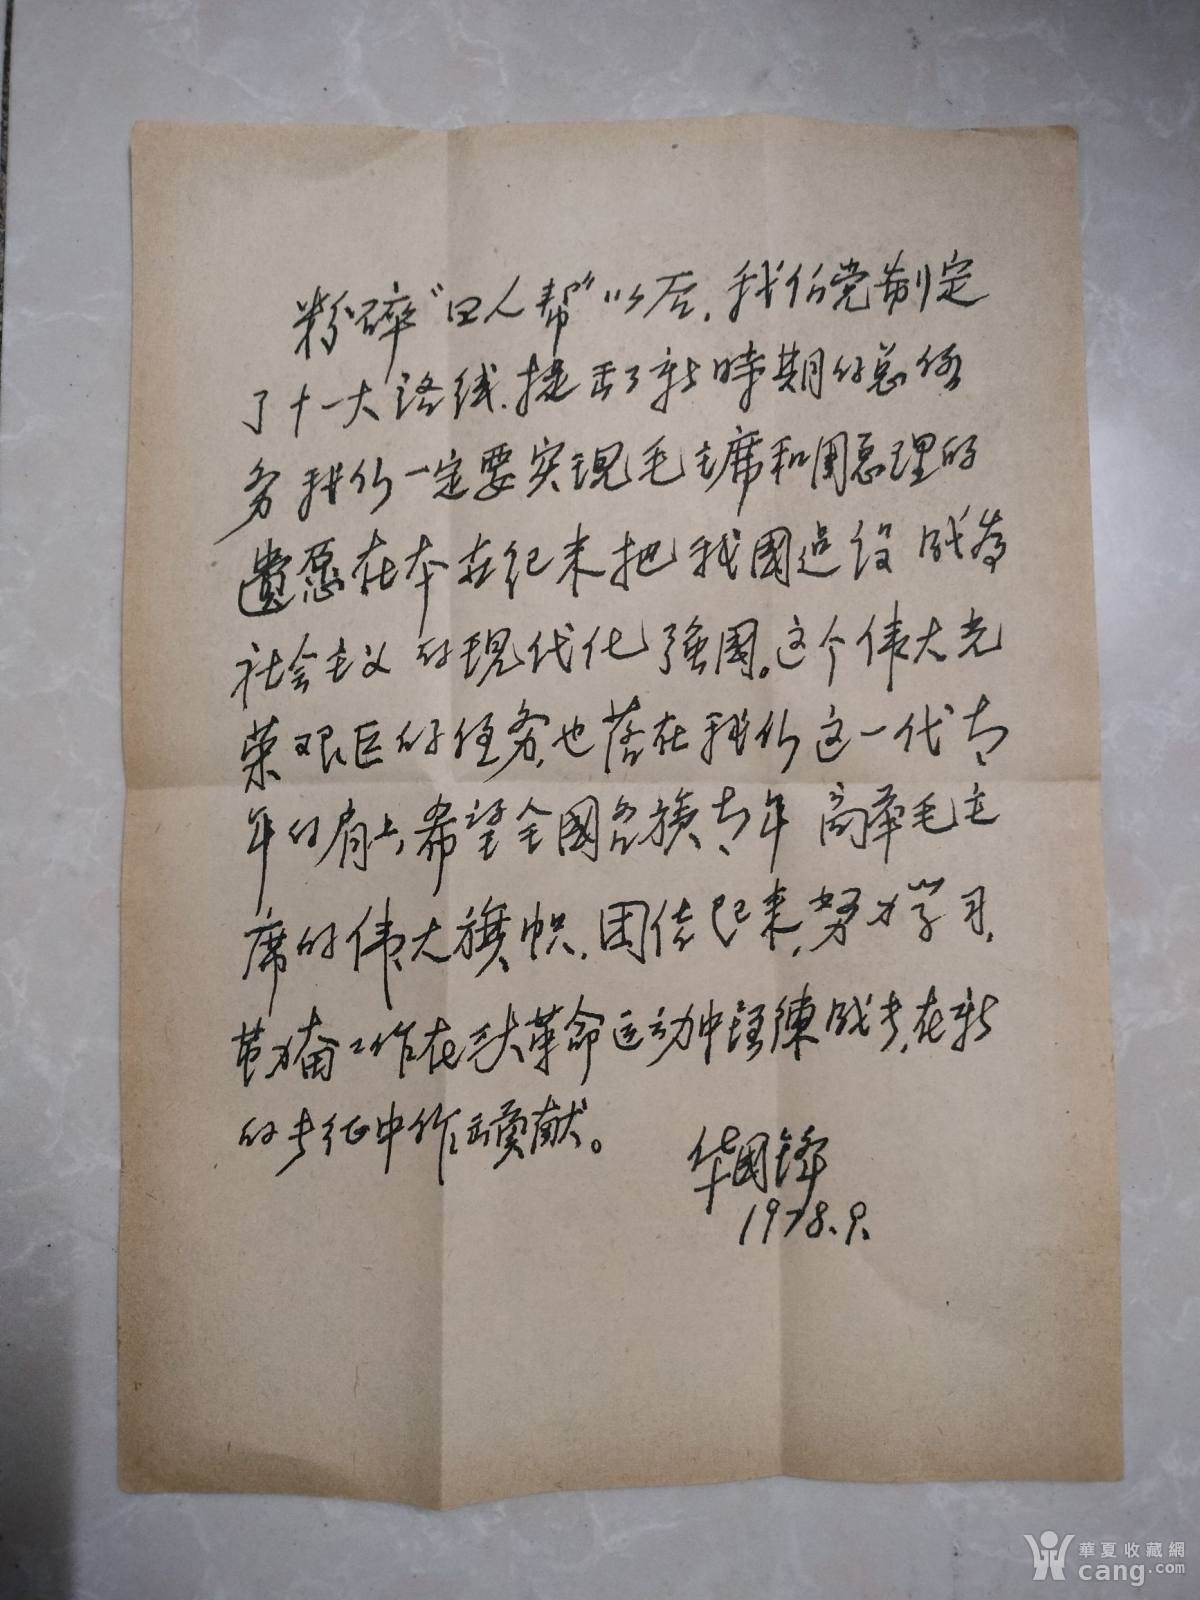 粉碎“四人帮”以后，我们党制定
了十一大路线，提出了新時期的总任
务我们一定要实现毛主席和周总理的
遗愿在本世纪末把我國建设成为
社会主义的现代化强國。这个伟大光
荣艰巨的任务，也落在我们这一代青
年的肩上，希望全國各族青年高举毛主
席的伟大旗帜，团结起来，努力学习，
勤奋工作在三大革命运动中锻練成长，在新
的长征中作出贡献。
华國锋
1978.9.
華夏收藏網
cang.com